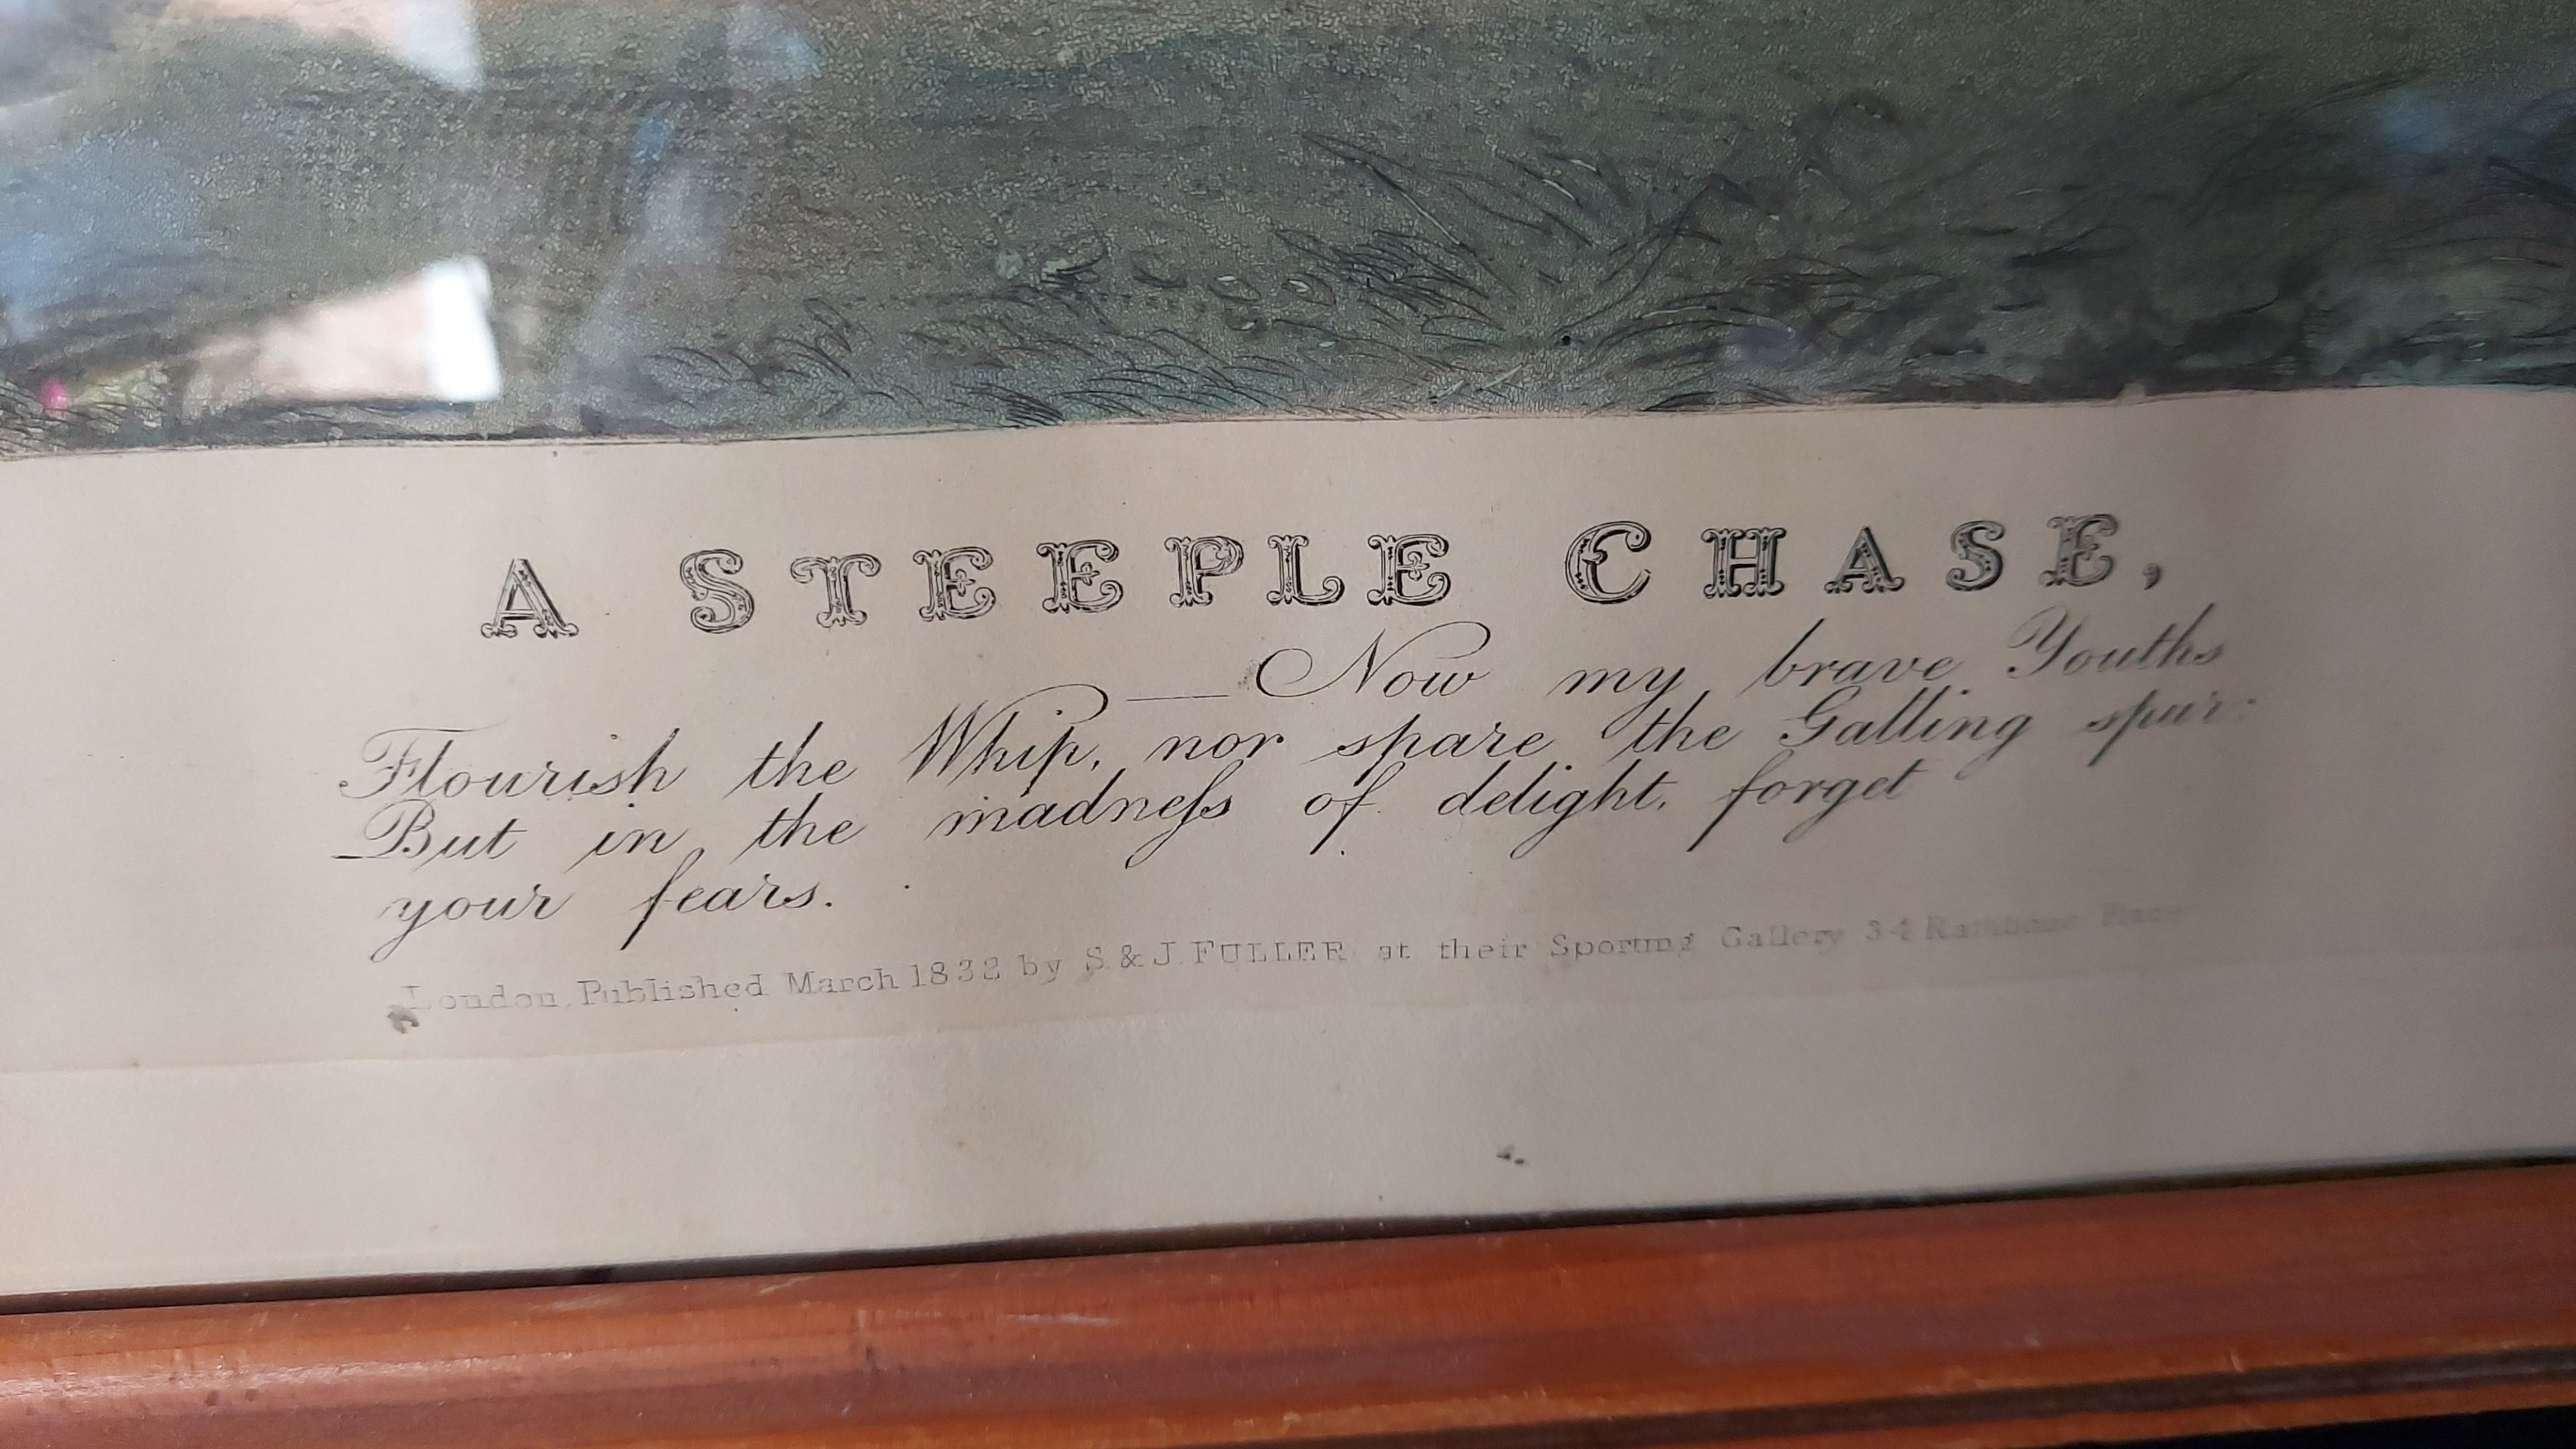 A STEEPLE CHASE,
— Now my brave Youths
Flourish the Whip, nor spare the Galling spur:
But in the madneſs of delight, forget
your fears.
London, Published March 1832 by S. & J. FULLER at their Sporting Gallery 34 Rathbone Place